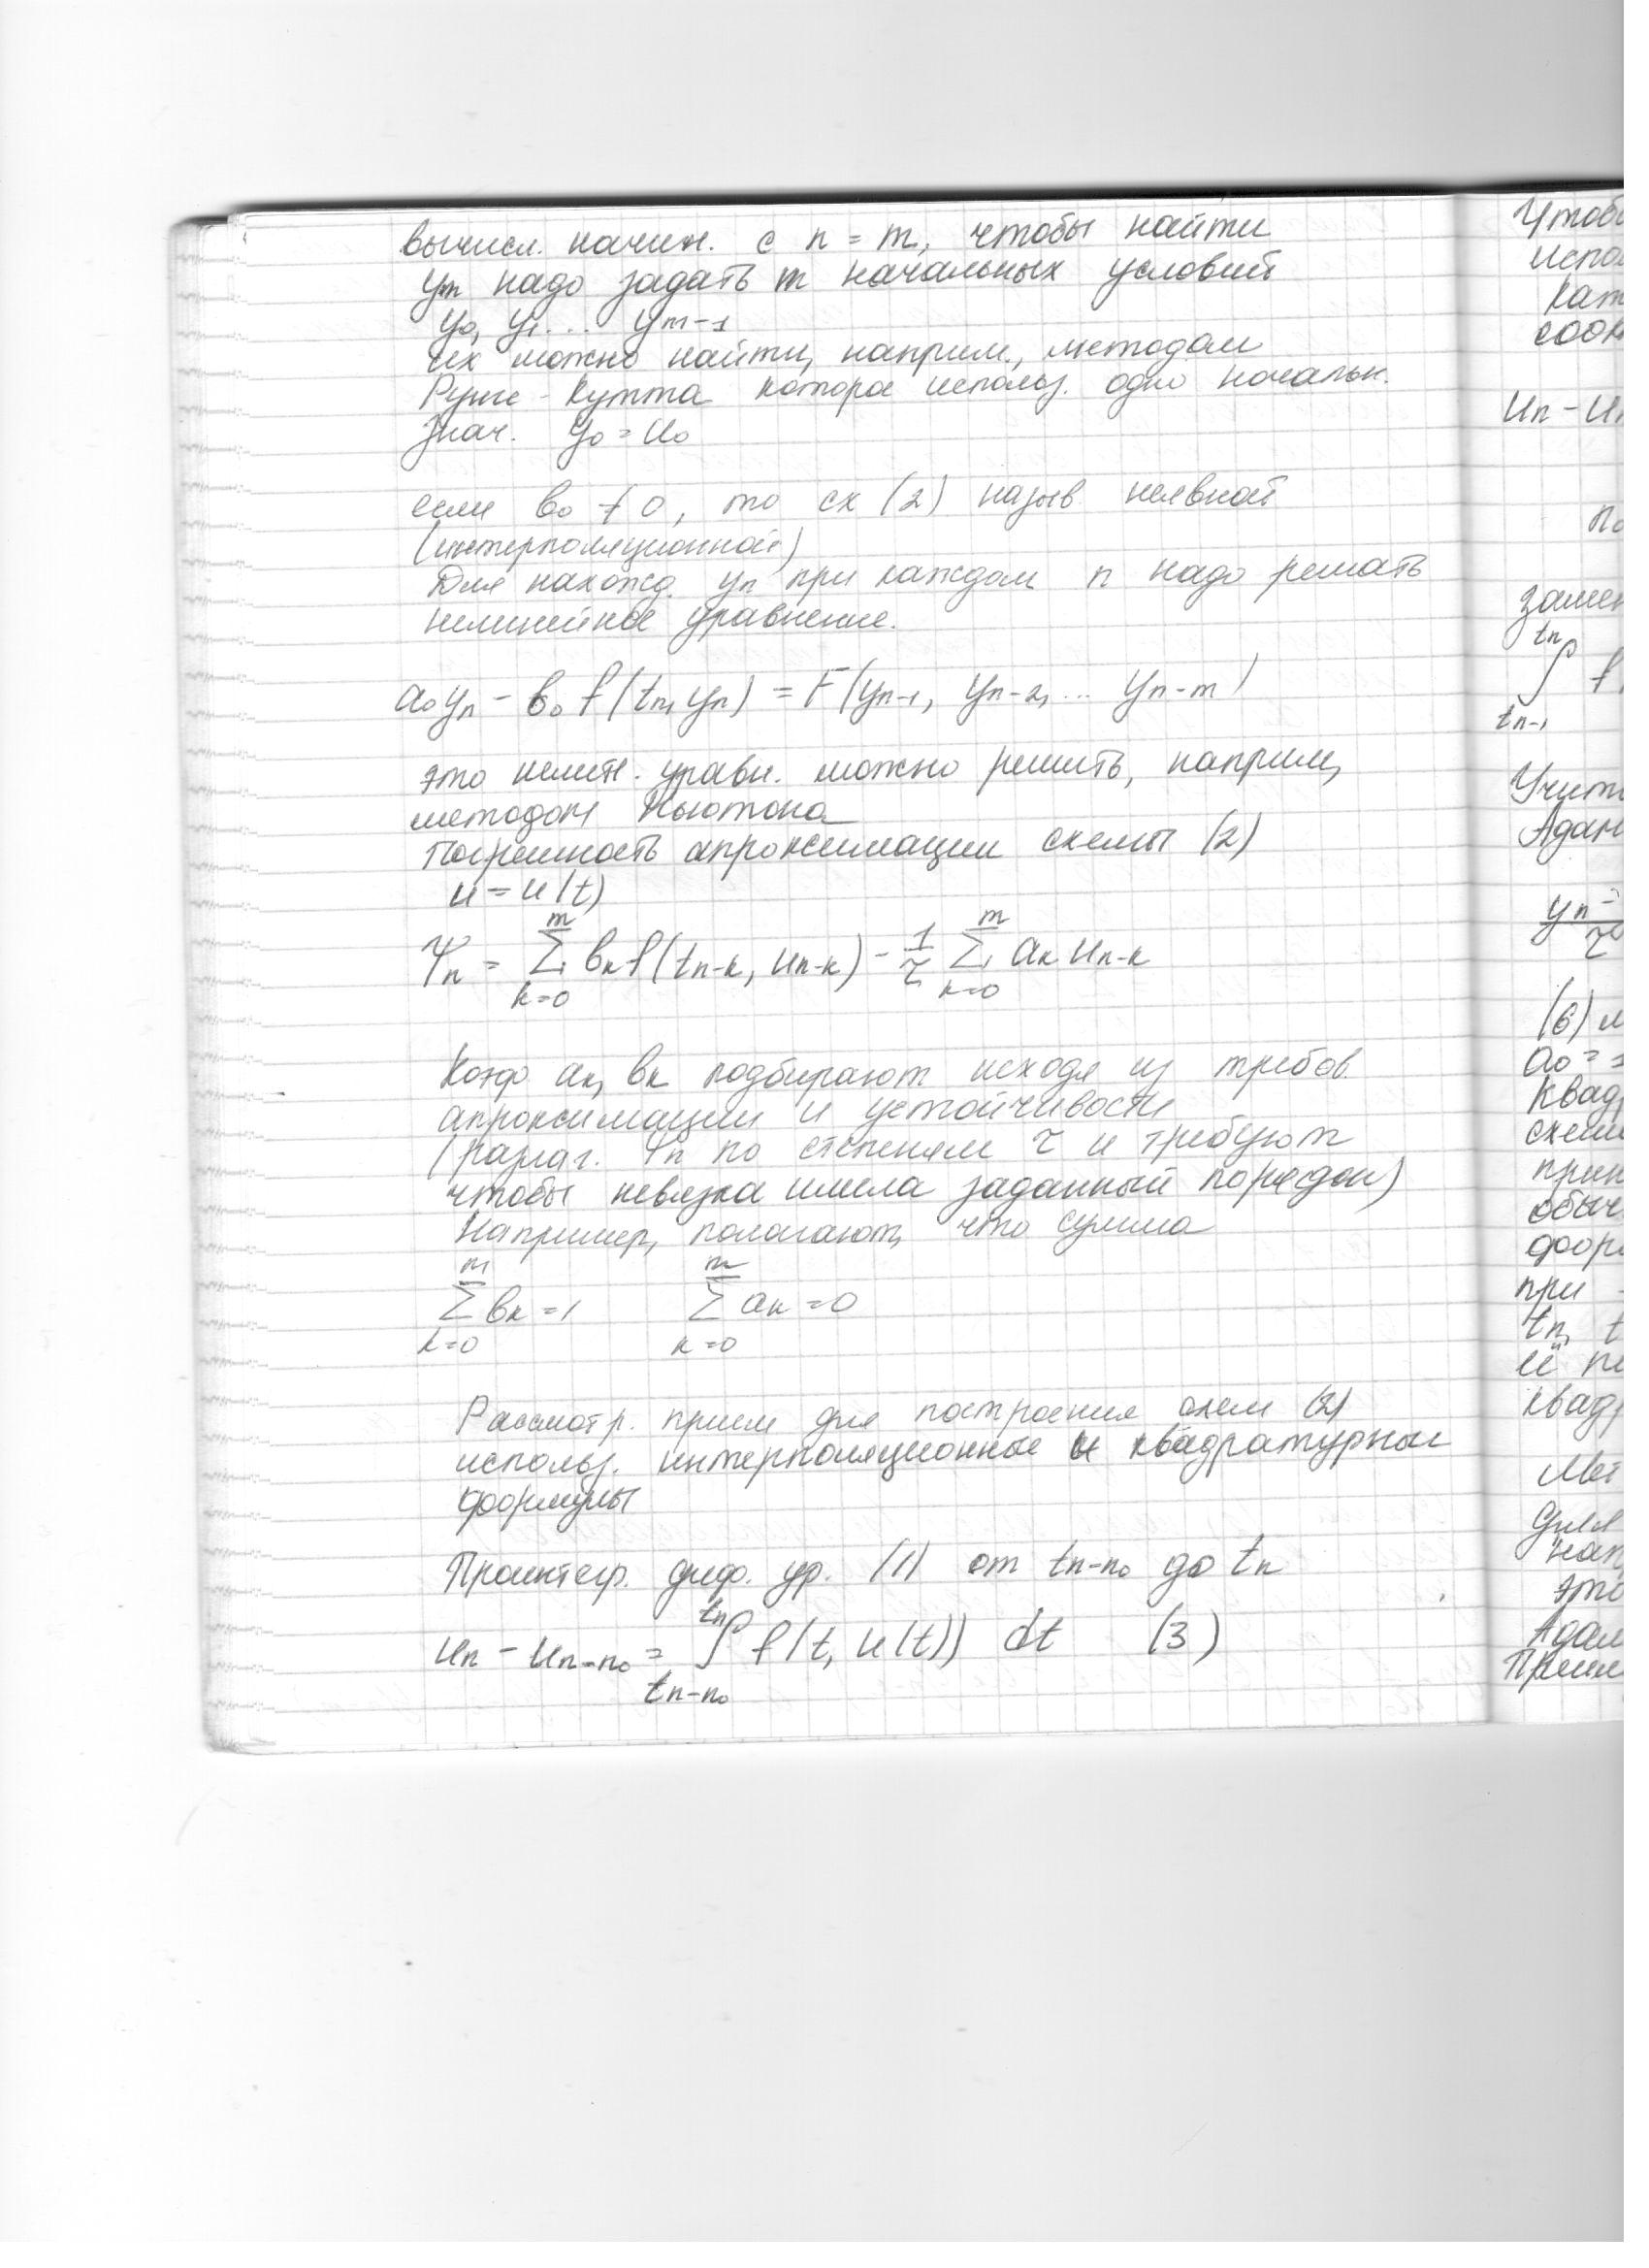 вычисл. начин. с n = m, чтобы найти
ym надо задать m начальных условий
y₀, y₁ ... ym-1
их можно найти, наприм., методом
Рунге - Кутта которое использ. одно начальн.
знач. y₀ = u₀
если b₀ ≠ 0, то сх (2) назыв неявной
(интерполяционной)
Для нахожд. yn при каждом n надо решать
нелинейное уравнение.
a₀yn - b₀ f(tn, yn) = F(yn-1, yn-2, ... yn-m)
это нелин. уравн. можно решить, наприм,
методом Ньютона
Погрешность апроксимации схемы (2)
u = u(t)
Ψn = Σ(k=0..m) bk f(tn-k, un-k) - 1/τ Σ(k=0..m) ak un-k
Коэф ak, bk подбирают исходя из требов.
апроксимации и устойчивости
(разлаг. Ψn по степеням τ и требуют
чтобы невязка имела заданный порядок)
Например, полагают, что сумма
Σ(k=0..m) bk = 1 Σ(k=0..m) ak = 0
Рассмотр. прием для построения схем (2)
использ. интерполяционные и квадратурные
формулы
Проинтегр. диф. ур. (1) от tn-n₀ до tn
un - un-n₀ = ∫(tn-n₀..tn) f(t, u(t)) dt (3)
Чтоб
испол
соот
un - u
по
замен
tn
∫ f
tn-1
Учит
Адам
yn -
τ
(6) м
a₀ = 1
квад
схем
прин
обыч
форм
при
tn, t
её
квад
Мет
для
нап
это
Адам